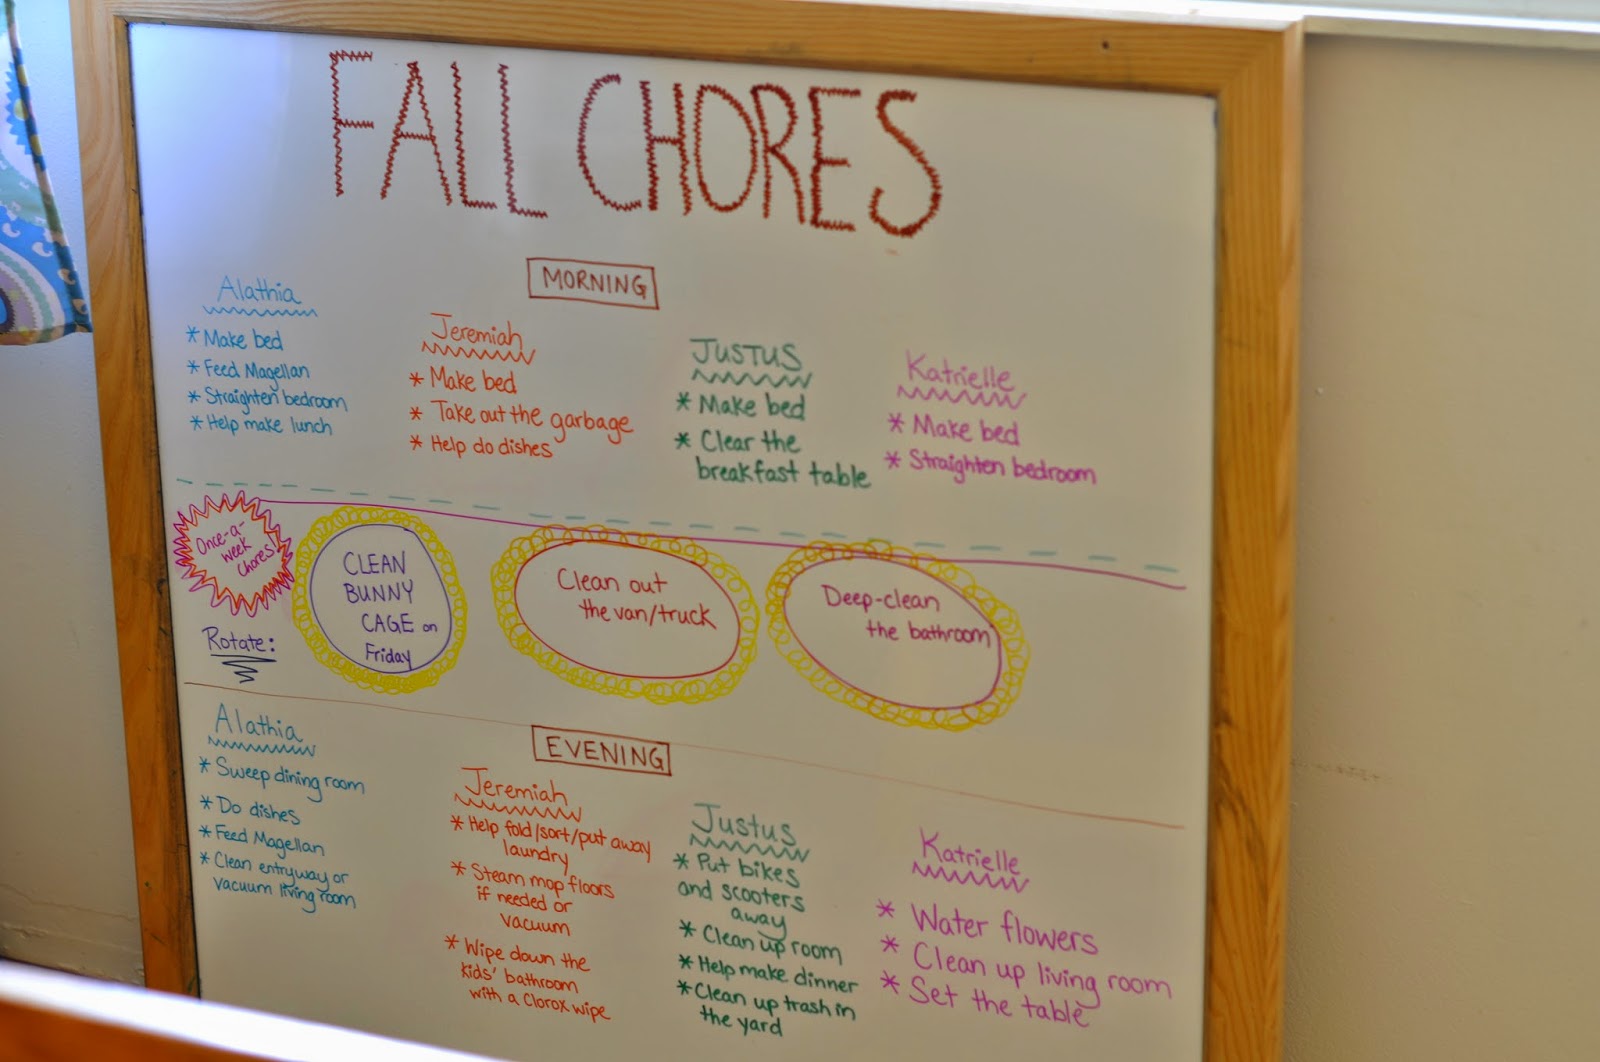 FALL CHORES
MORNING
Alathia
* Make bed
* Feed Magellan
* Straighten bedroom
* Help make lunch
Jeremiah
* Make bed
* Take out the garbage
* Help do dishes
JUSTUS
* Make bed
* Clear the
breakfast table
Katrielle
* Make bed
* Straighten bedroom
Once-a-
week
chores!
Rotate:
CLEAN
BUNNY
CAGE on
Friday
Clean out
the van/truck
Deep-clean
the bathroom
EVENING
Alathia
* Sweep dining room
* Do dishes
* Feed Magellan
* Clean entryway or
vacuum living room
Jeremiah
* Help fold/sort/put away
laundry
* Steam mop floors
if needed or
vacuum
* Wipe down the
kids' bathroom
with a Clorox wipe
Justus
* Put bikes
and scooters
away
* Clean up room
* Help make dinner
* Clean up trash in
the yard
Katrielle
* Water flowers
* Clean up living room
* Set the table